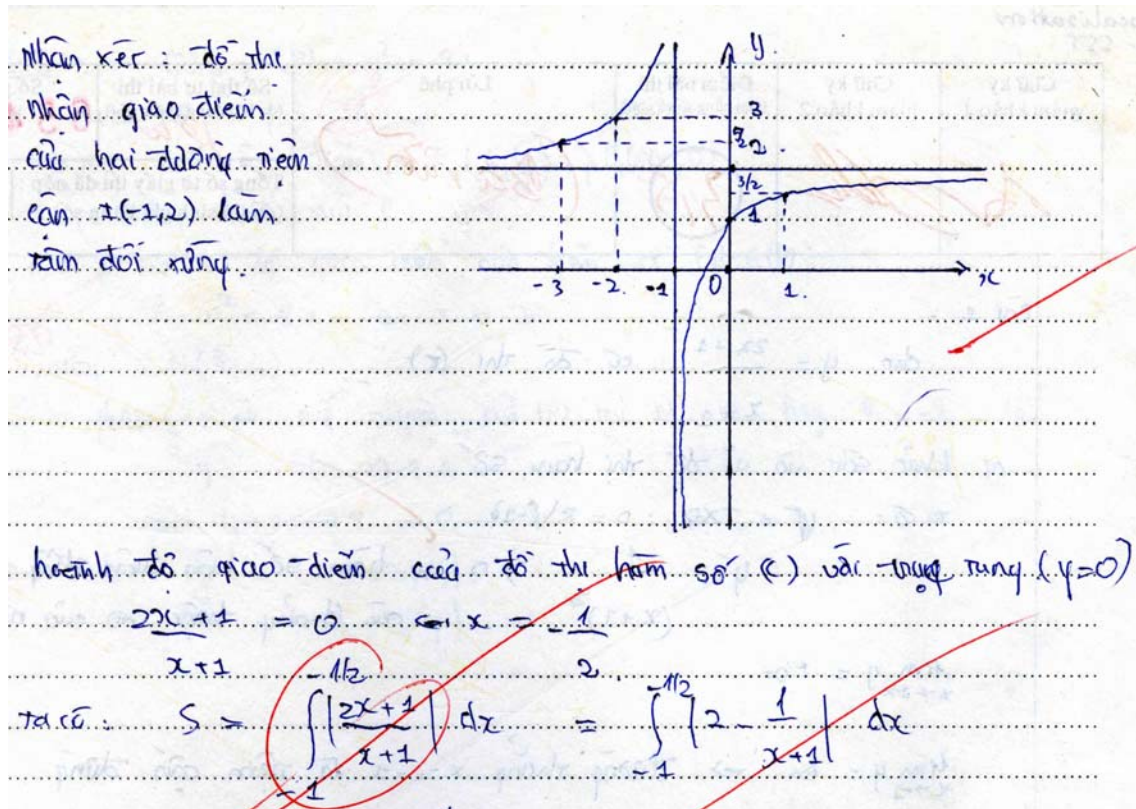 Nhận xét : đồ thị
nhận giao điểm
của hai đường tiệm
cận I(-1,2) làm
tâm đối xứng.
y
3
2
3/2
1
-3 -2. -1 0 1. x
hoành độ giao điểm của đồ thị hàm số (C) với trục tung (y=0)
2x+1 / x+1 = 0 ⇔ x = -1/2.
ta có: S = ∫_{-1}^{-1/2} |2x+1 / x+1| dx = ∫_{-1}^{-1/2} |2 - 1/x+1| dx